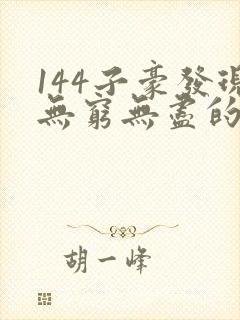 144子豪發現
無窮無盡的
胡一峰